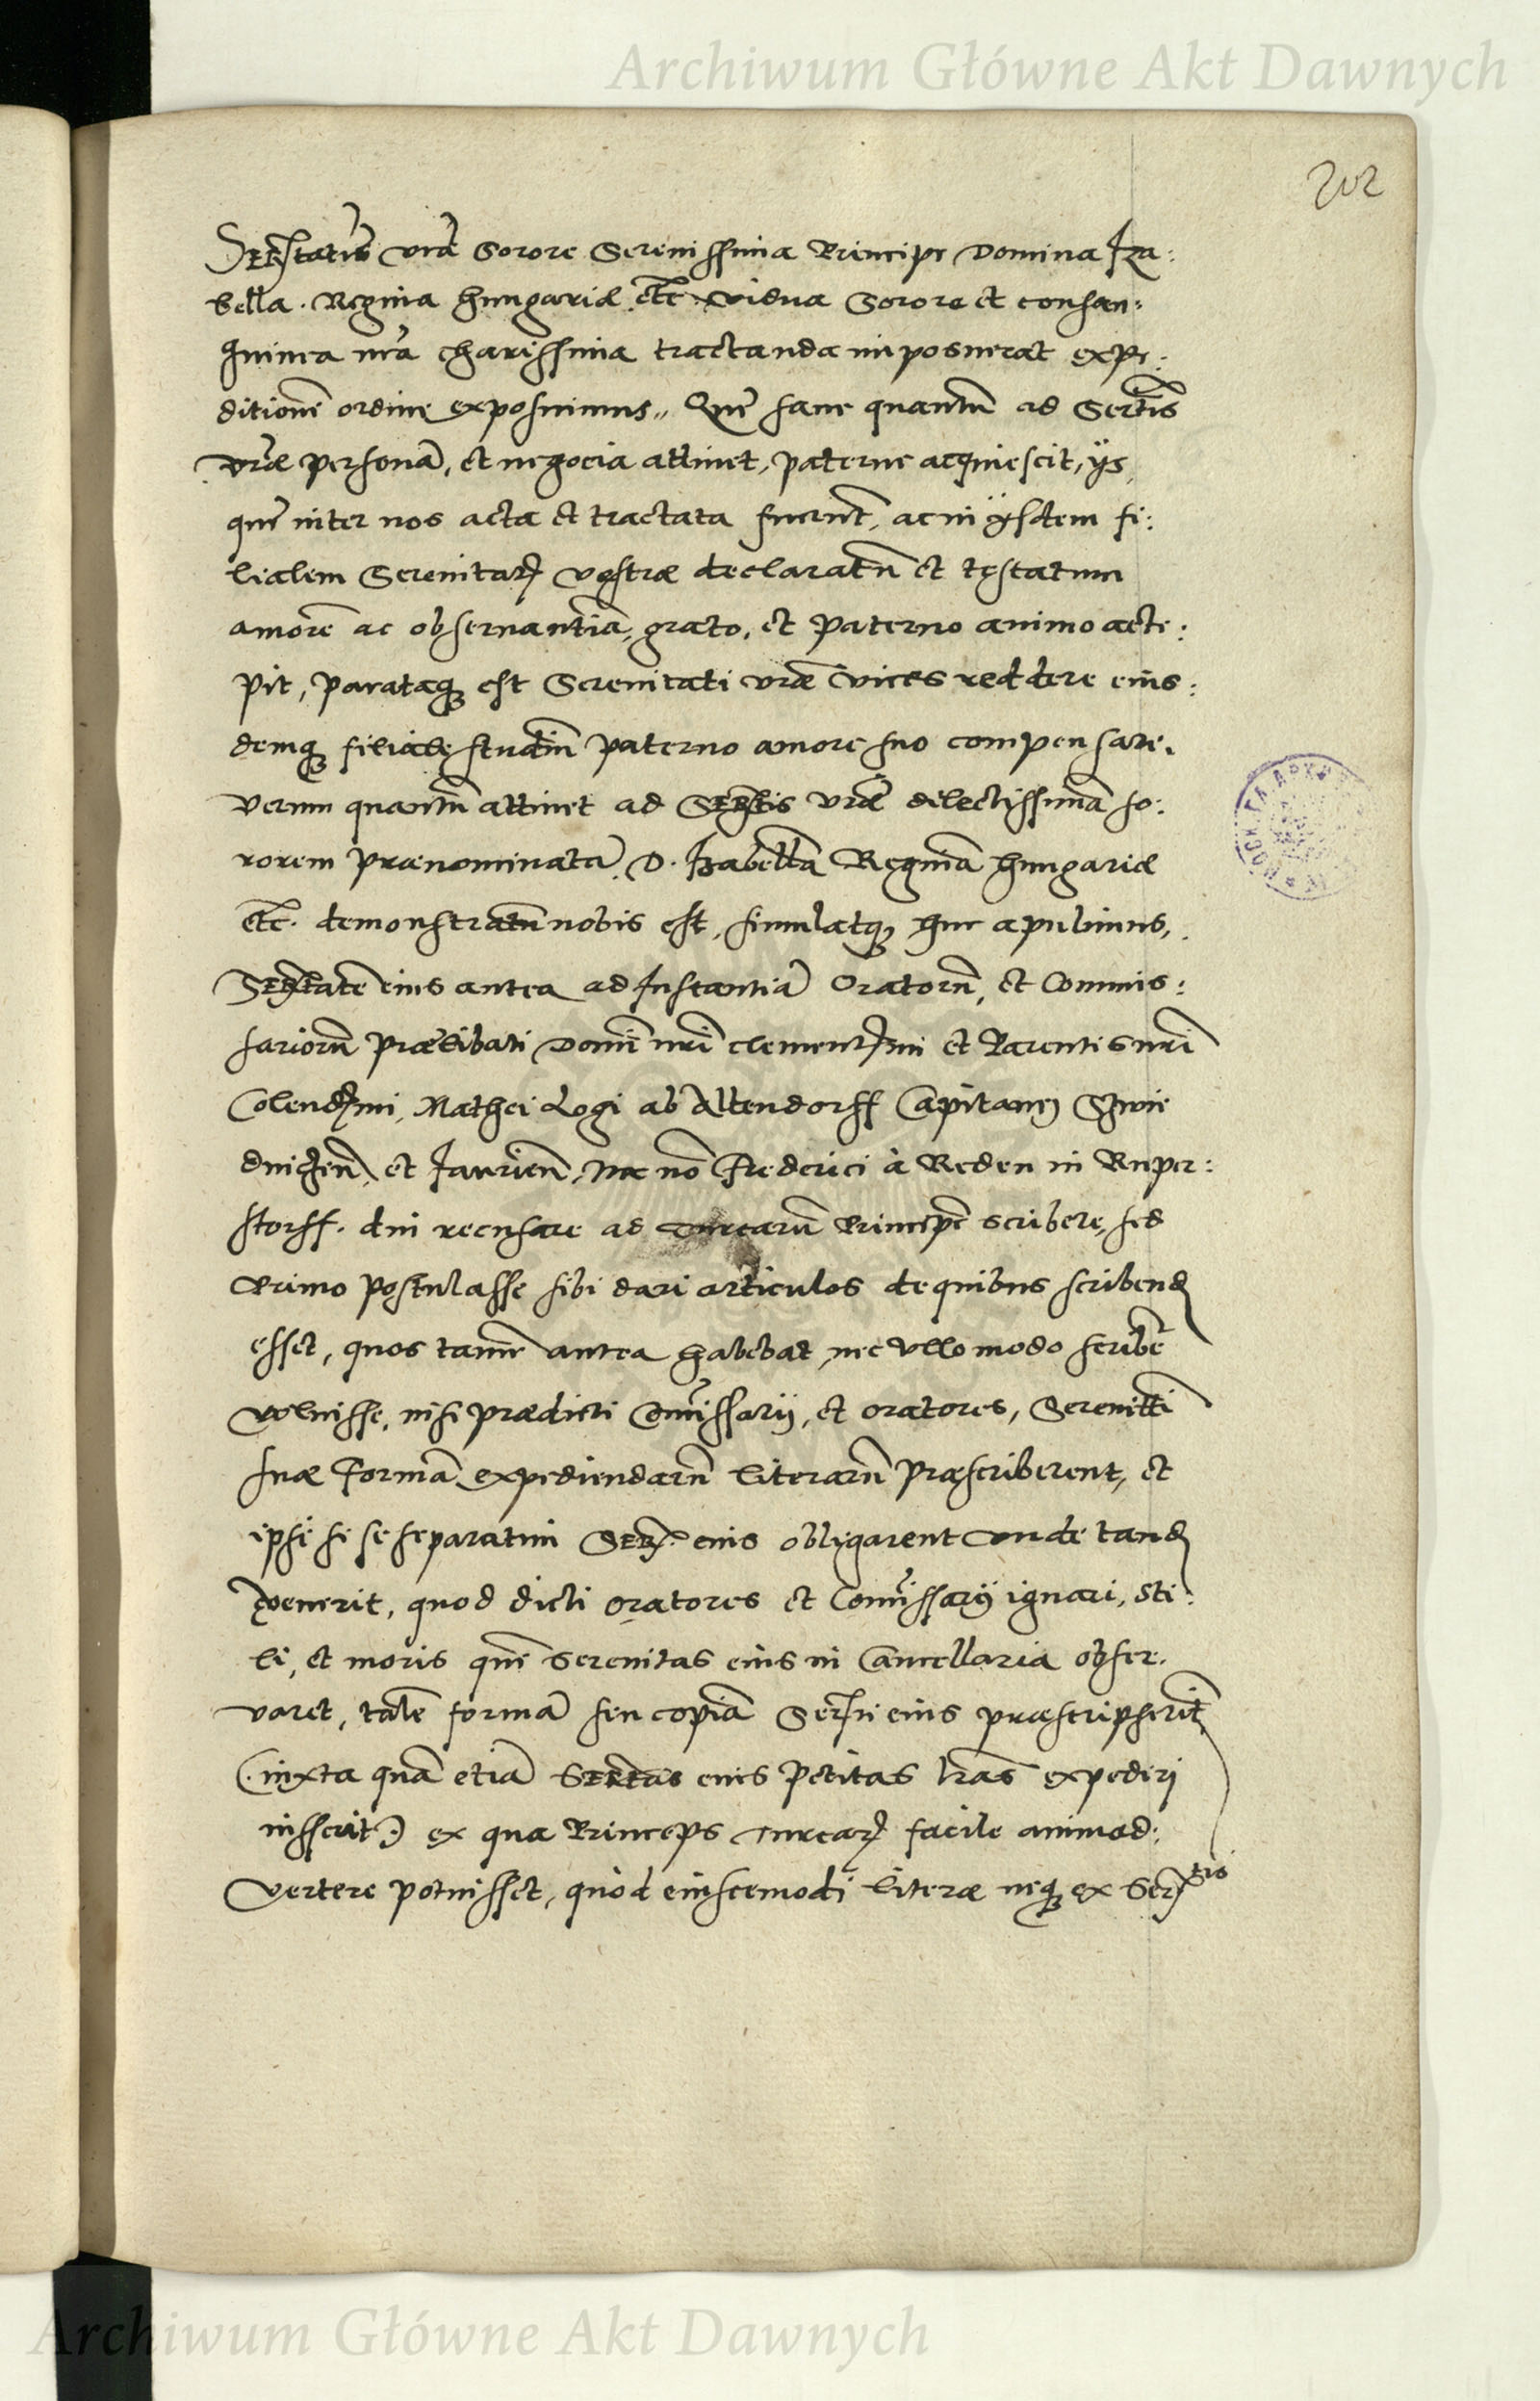 Archiwum Główne Akt Dawnych
202
Sertatis vrae Sorore Serenissima Principe Domina Iza:
bella. Regina Hungariæ etc vidua Sorore et consan:
guinea nra charissima tractanda imposuerat expe:
ditionẽ ordine exposuimus,, Que sane quantũ ad Sertis
vræ personã, et negocia attinet, paterne acquiescit, ijs
que inter nos acta et tractata fuerũt, ac in ijsdem fi:
lialem Serenitatis vestræ declaratũ et testatum
amorẽ ac obseruantiã, grato, et paterno animo acce:
pit, parataq est Serenitati vræ vices reddere eius:
demq filiale studiũ paterno amore suo compensare.
Verum quantũ attinet ad Sertis vræ dilectissimã so:
rorem prænominatã D. Izabellã Reginã Hungariæ
etc. demonstratũ nobis est, simulatq huc apulimus,
Sertatẽ eius antea ad Instantiã Oratorũ, et Commis:
sariorũ prælibati Domĩ nri clementissimi et Parentis nri
Colendissimi, Mathei Logi ab Altendorff Capitanej
et Iauriẽn, Nec nõ Frederici à Reden in Ruper:
storff. diu recusare ad Turcarũ Principẽ scribere, sed
Primo postulasse sibi dari articulos de quibus scribend
esset, quos tamẽ antea habebat, nec vllo modo scribẽ
voluisse, nisi prædicti Comissarij, et oratores, Serenitti
suæ Formã expediendarũ literarũ præscriberent, et
ipsi se separatim Ser. eius obligarent vnde tand
venerit, quod dicti oratores et Comissarij ignari, sti:
li, et moris quẽ Serenitas eius in Cancellaria obser.
varet, talẽ formã seu copiã Serti eius præscripserĩt
(iuxta quã etiã Sertas eius petitas lras expediri
iusserit) ex qua Princeps Turcar facile animad:
vertere potuisset, quod eiuscemodi literæ neq ex Sertis
Archiwum Główne Akt Dawnych